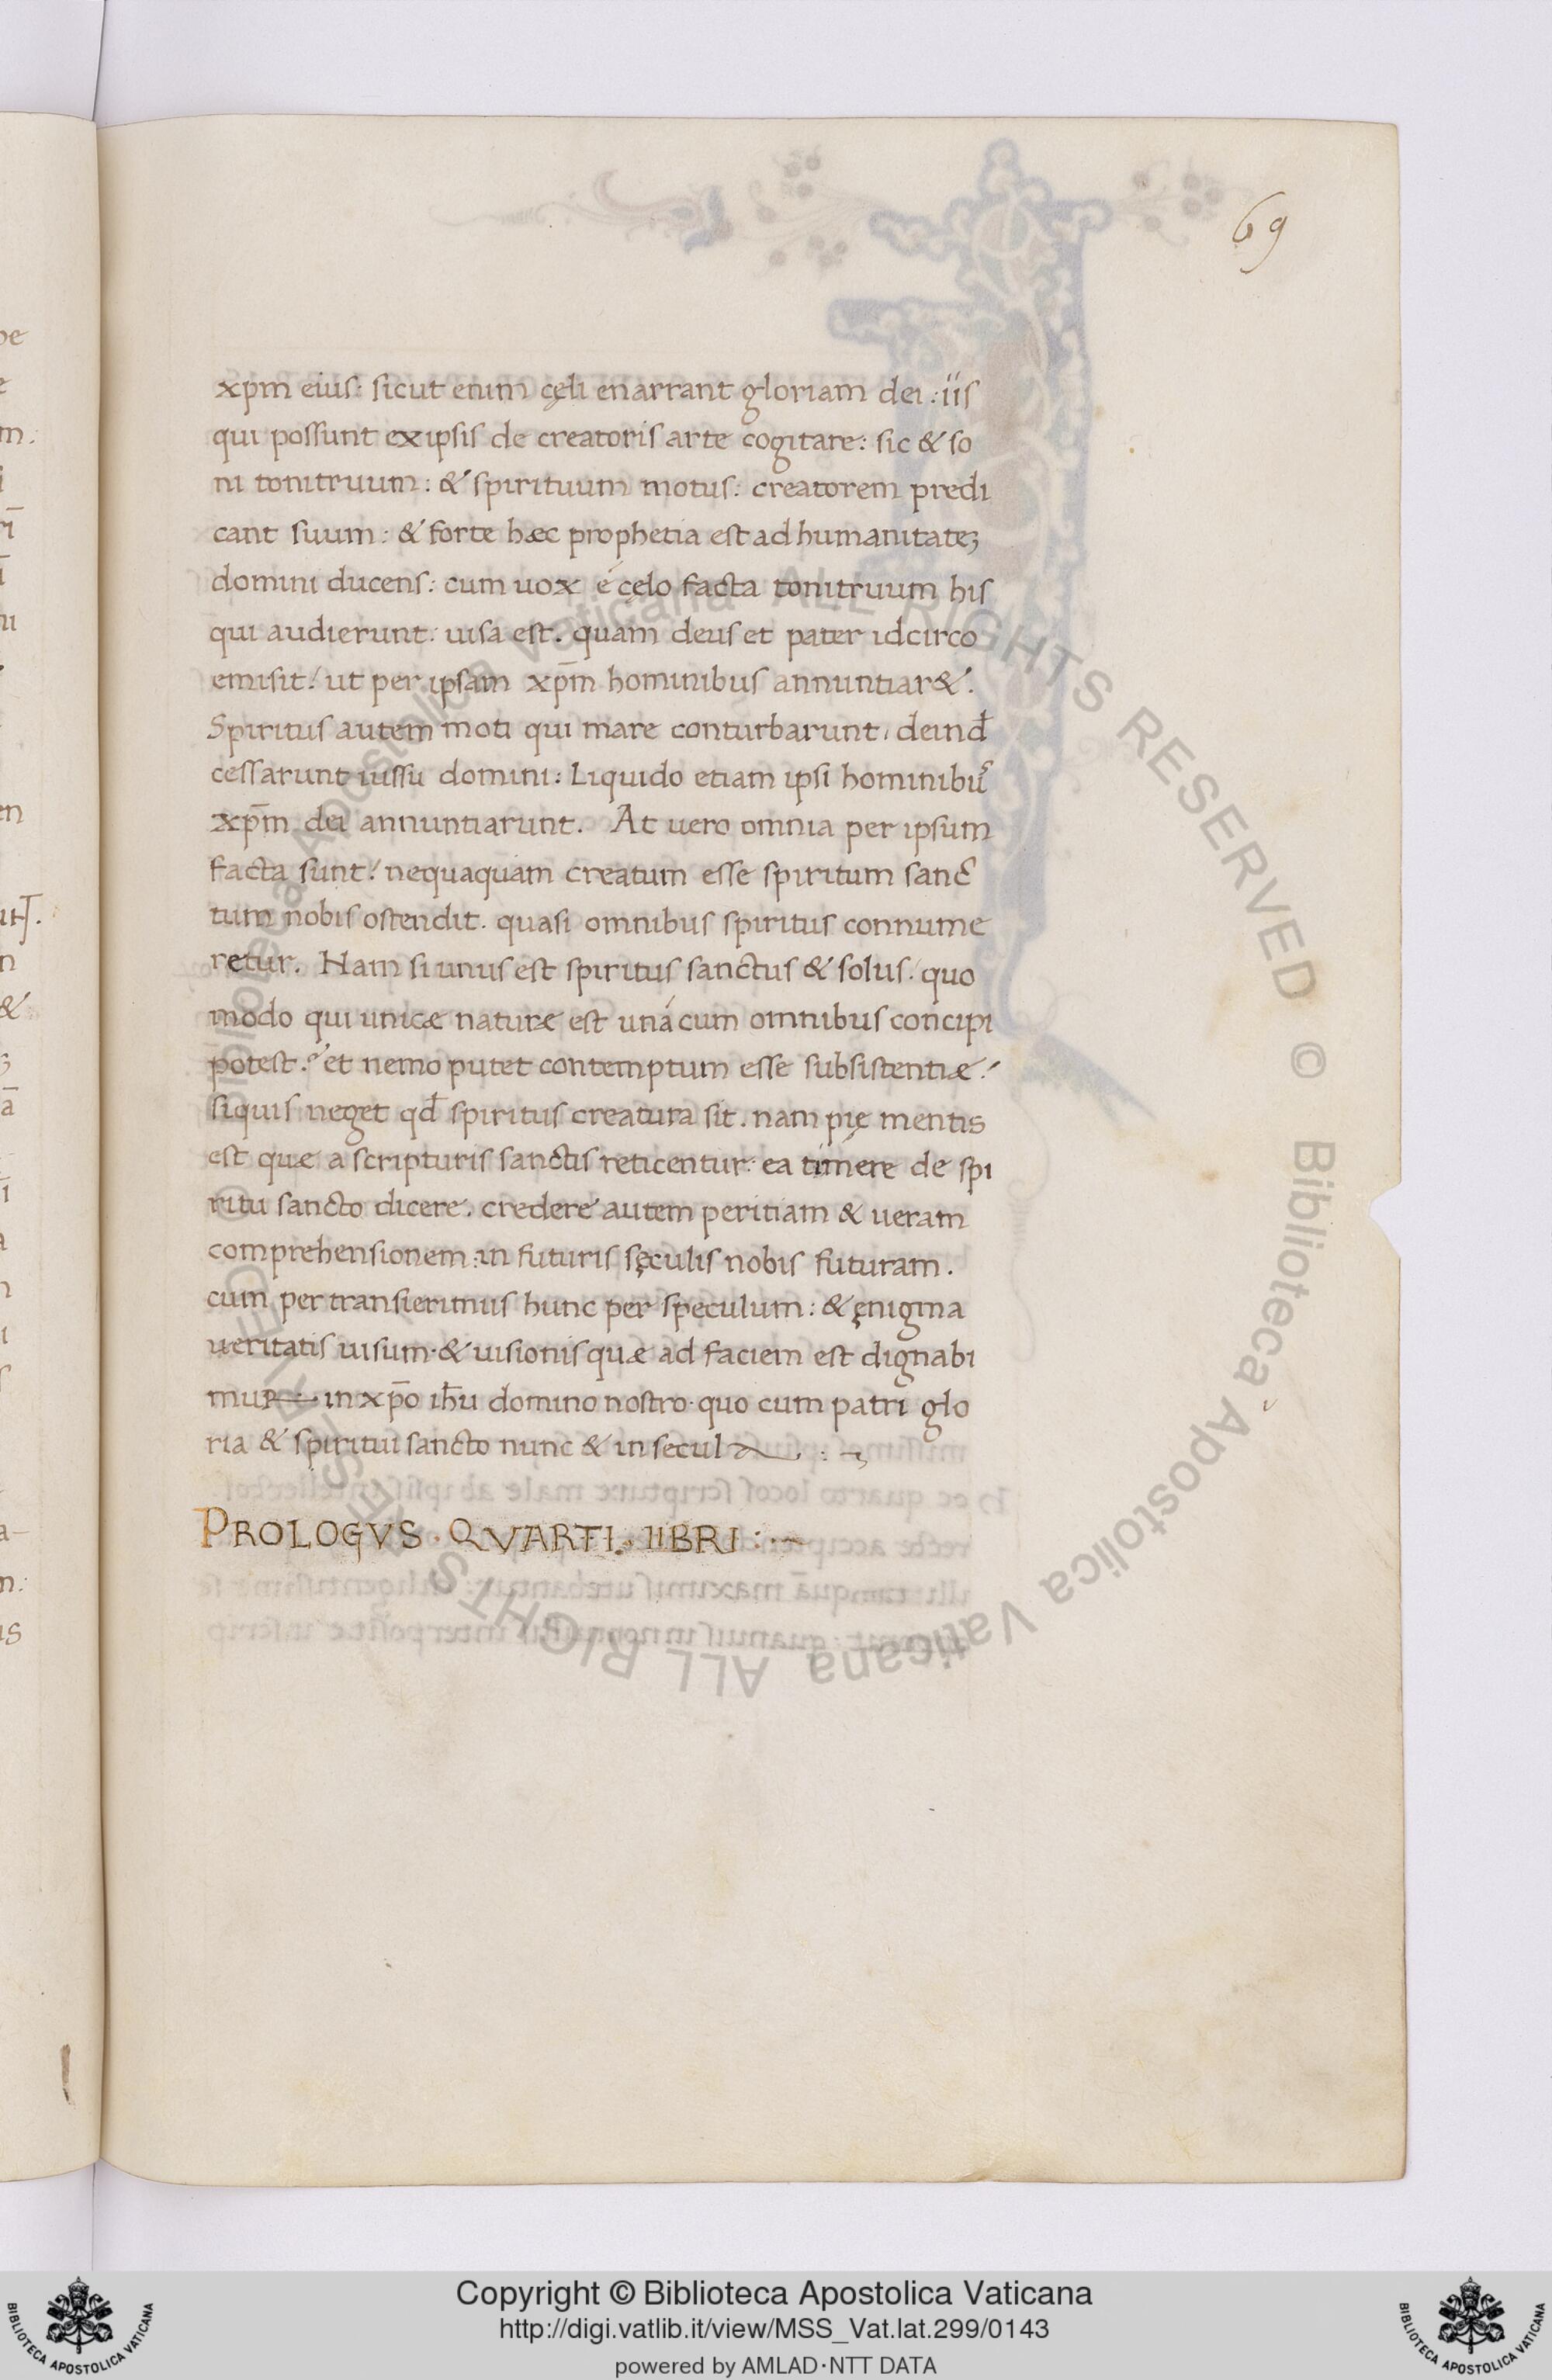 69
xp̄m eius: sicut enim cęli enarrant gloriam dei: iis
qui possunt ex ipsis de creatoris arte cogitare: sic & so
ni tonitruum: & spirituum motus: creatorem predi
cant suum: & forte hæc prophetia est ad humanitateꝫ
domini ducens: cum uox é cęlo facta tonitruum his
qui audierunt. uisa est. quam deus et pater idcirco
emisit! ut per ipsam xp̄m hominibus annuntiar&.
Spiritus autem moti qui mare conturbarunt, deind̄
cessarunt iussu domini: Liquido etiam ipsi hominibuˢ
xp̄m dei annuntiarunt. At uero omnia per ipsum
facta sunt! nequaquam creatum esse spiritum sanc
tum nobis ostendit. quasi omnibus spiritus connume
retur. Nam si unus est spiritus sanctus & solus. quo
modo qui unicæ naturæ est uná cum omnibus concipi
potest? et nemo putet contemptum esse subsistentiæ!
siquis neget qd̄ spiritus creatura sit. nam pię mentis
est quæ a scripturis sanctis reticentur: ea timere de spi
ritu sancto dicere. credere autem peritiam & ueram
comprehensionem in futuris sęculis nobis futuram.
cum pertransierimus hunc per speculum: & ęnigma
ueritatis uisum. & uisionis quæ ad faciem est dignabi
mur in xp̄o ih̄u domino nostro. quo cum patri glo
ria & spiritui sancto nunc & in secula
PROLOGVS · QVARTI · lIBRI :~
© Biblioteca Apostolica Vaticana ALL RIGHTS RESERVED © Biblioteca Apostolica Vaticana ALL RIGHTS RESERVED
BIBLIOTECA APOSTOLICA VATICANA
Copyright © Biblioteca Apostolica Vaticana
http://digi.vatlib.it/view/MSS_Vat.lat.299/0143
powered by AMLAD·NTT DATA
BIBLIOTECA APOSTOLICA VATICANA